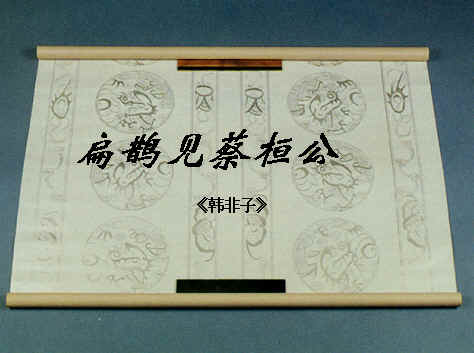 扁鹊见蔡桓公
《韩非子》